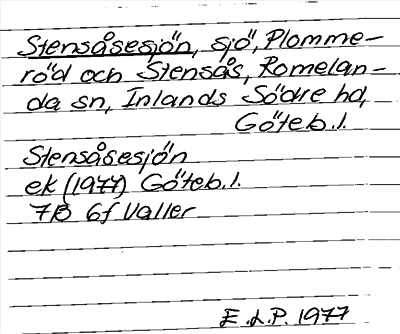 Stensåsesjön, sjö, Plomme-
röd och Stensås, Romelan-
da sn, Inlands Södre hd,
Göteb. l.
Stensåsesjön
ek (1977) Göteb. l.
7B 6f Valler
E.L.P. 1977